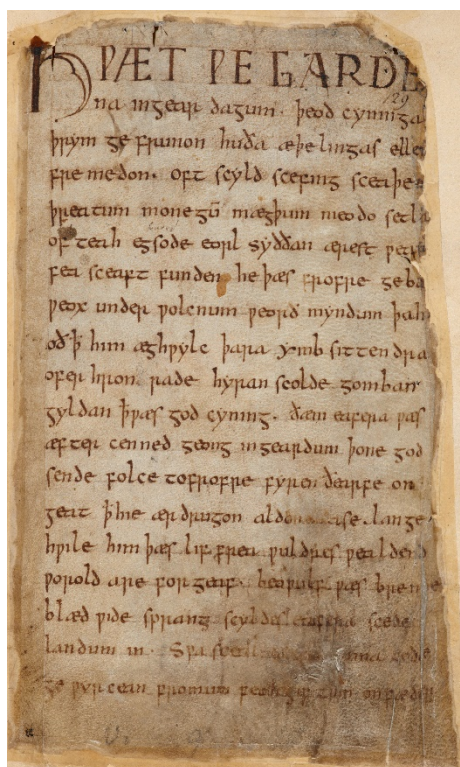 HǷÆT ǷE GARDE
129
na ingear dagum. þeod cyninga
þrym ge frunon huða æþelingas elle
fre medon. oft scyld scefing sceaþe
þreatum monegū mægþum meodo setla
of teah egsode eorl syððan ærest ƿear
fea sceaft funden he þæs frofre geba
ƿeox under ƿolcnum ƿeorð myndum þah
oðꝥ him æghƿylc þara ymb sittendra
ofer hron rade hyran scolde gomban
gyldan ꝥ ƿæs god cyning. ðæm eafera ƿæs
æfter cenned geong in geardum þone god
sende folce to frofre fyren ðearfe on
geat ꝥ hie ær drugon aldor ase. lange
hƿile him þæs lif frea ƿuldres ƿealdend
ƿorold are for geaf. beoƿulf ƿæs breme
blæd ƿide sprang scyldes eafera scede
landum in. Sƿa
ge ƿyrcean fromum feoh giftum on fæder